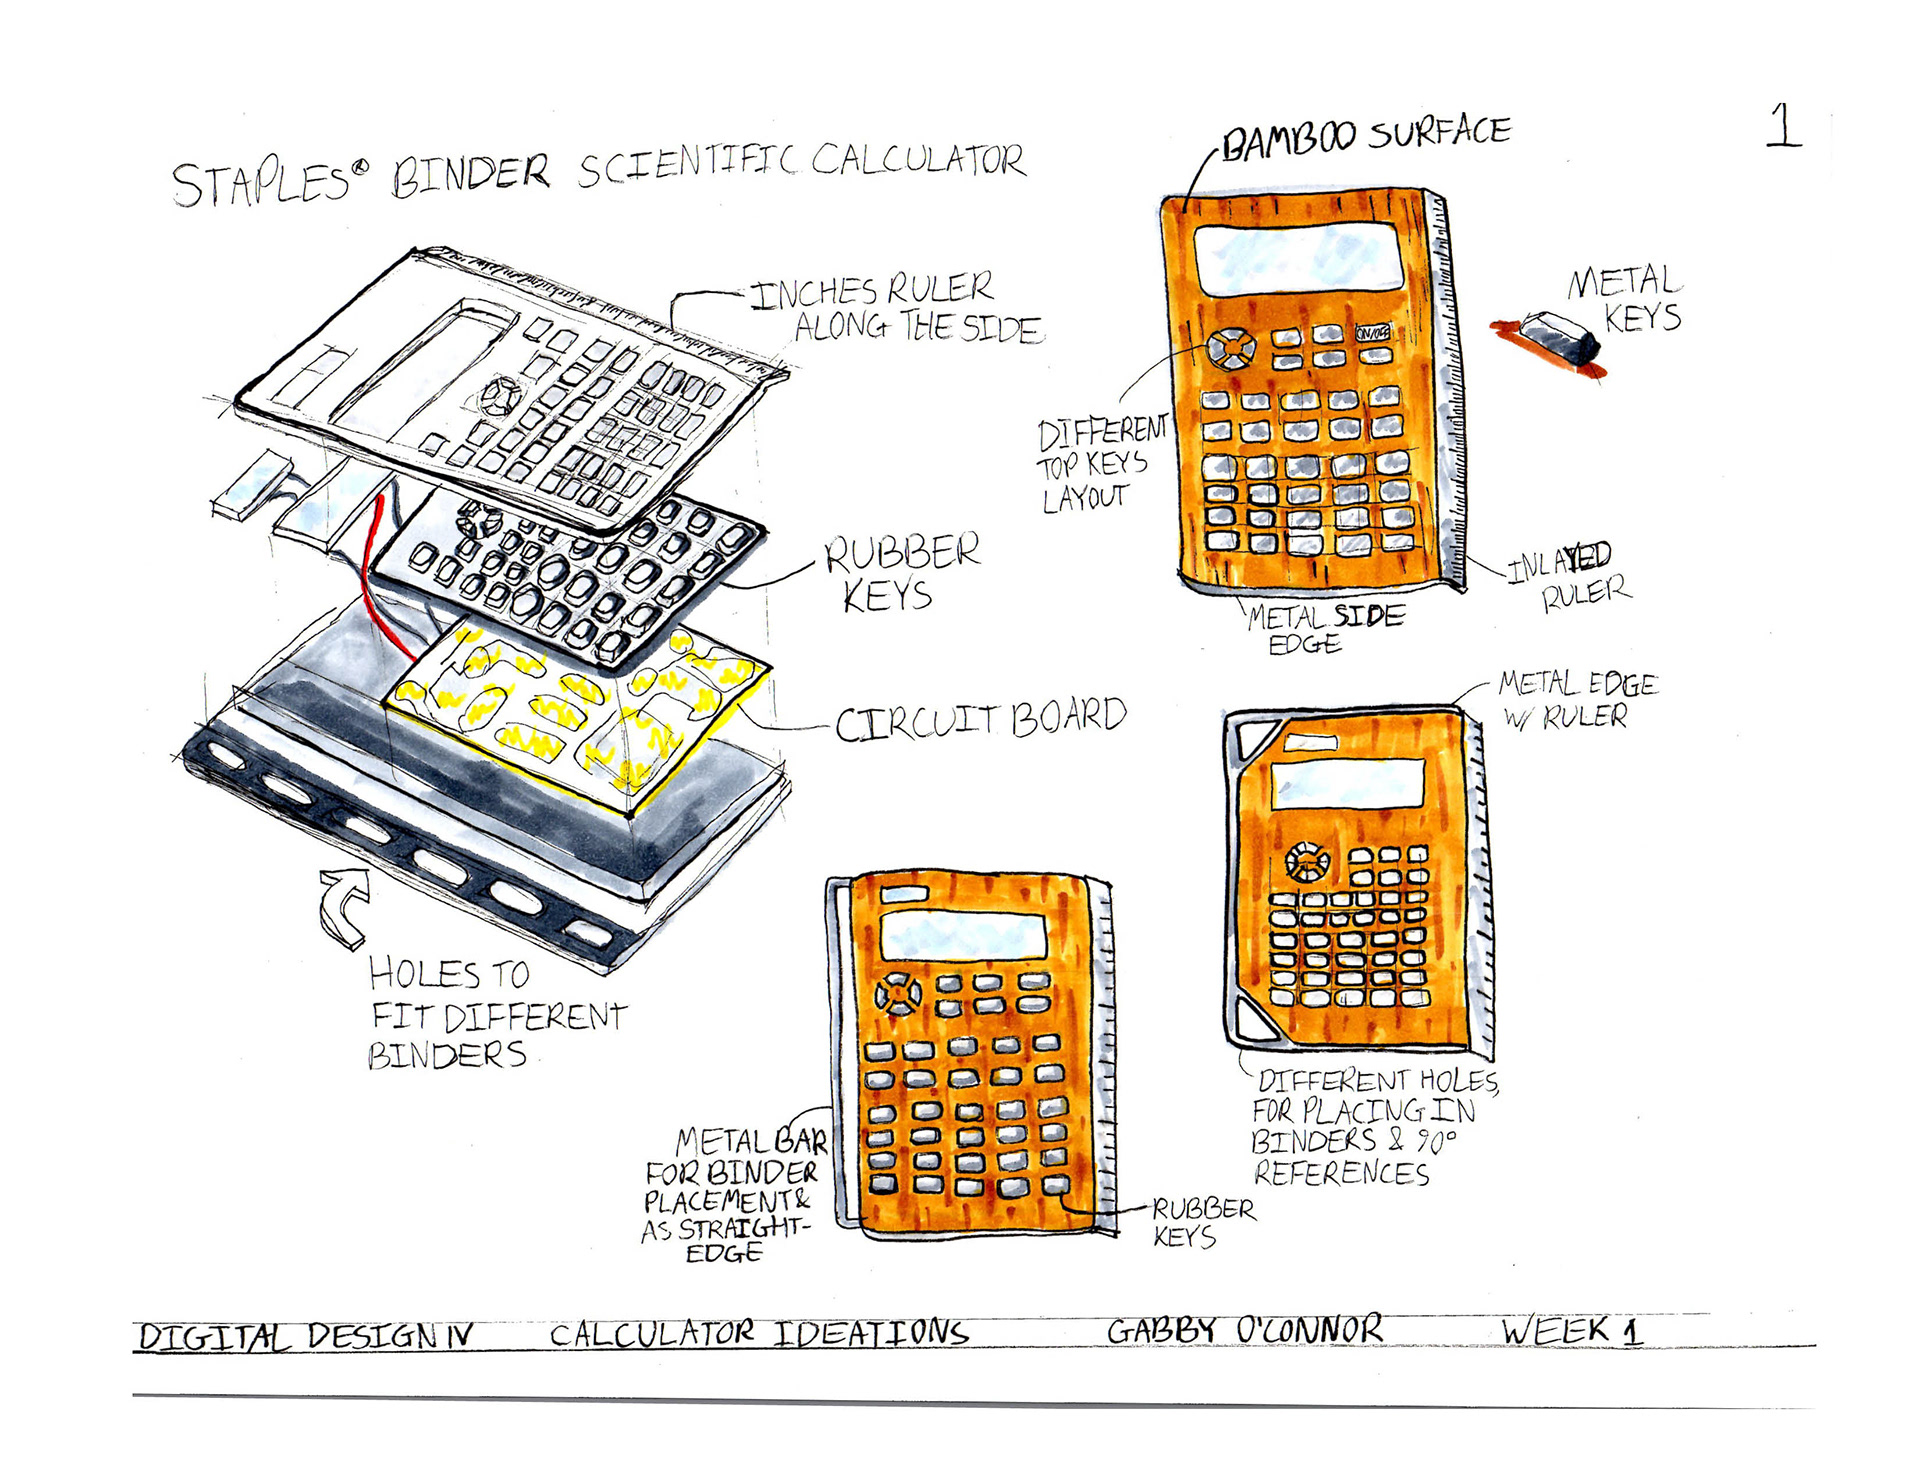 1
STAPLES® BINDER SCIENTIFIC CALCULATOR
INCHES RULER
ALONG THE SIDE
RUBBER
KEYS
CIRCUIT BOARD
HOLES TO
FIT DIFFERENT
BINDERS
BAMBOO SURFACE
ON/OFF
METAL
KEYS
DIFFERENT
TOP KEYS
LAYOUT
INLAYED
RULER
METAL SIDE
EDGE
METAL EDGE
W/ RULER
DIFFERENT HOLES,
FOR PLACING IN
BINDERS & 90°
REFERENCES
METAL BAR
FOR BINDER
PLACEMENT &
AS STRAIGHT-
EDGE
RUBBER
KEYS
DIGITAL DESIGN IV CALCULATOR IDEATIONS GABBY O'CONNOR WEEK 1